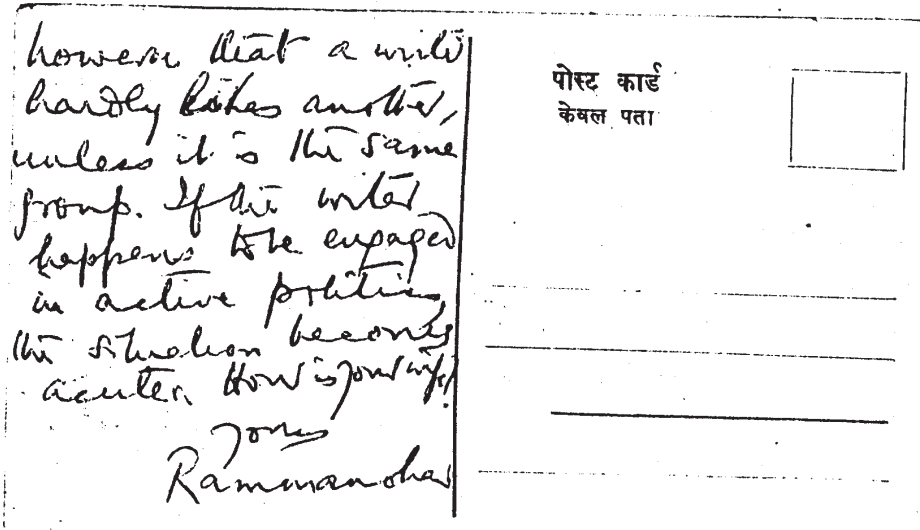 however that a writer
hardly likes another,
unless it is the same
group. If the writer
happens to be engaged
in active politics,
the situation becomes
acuter. How is your wife?
yours
Rammanohar
पोस्ट कार्ड
केवल पता